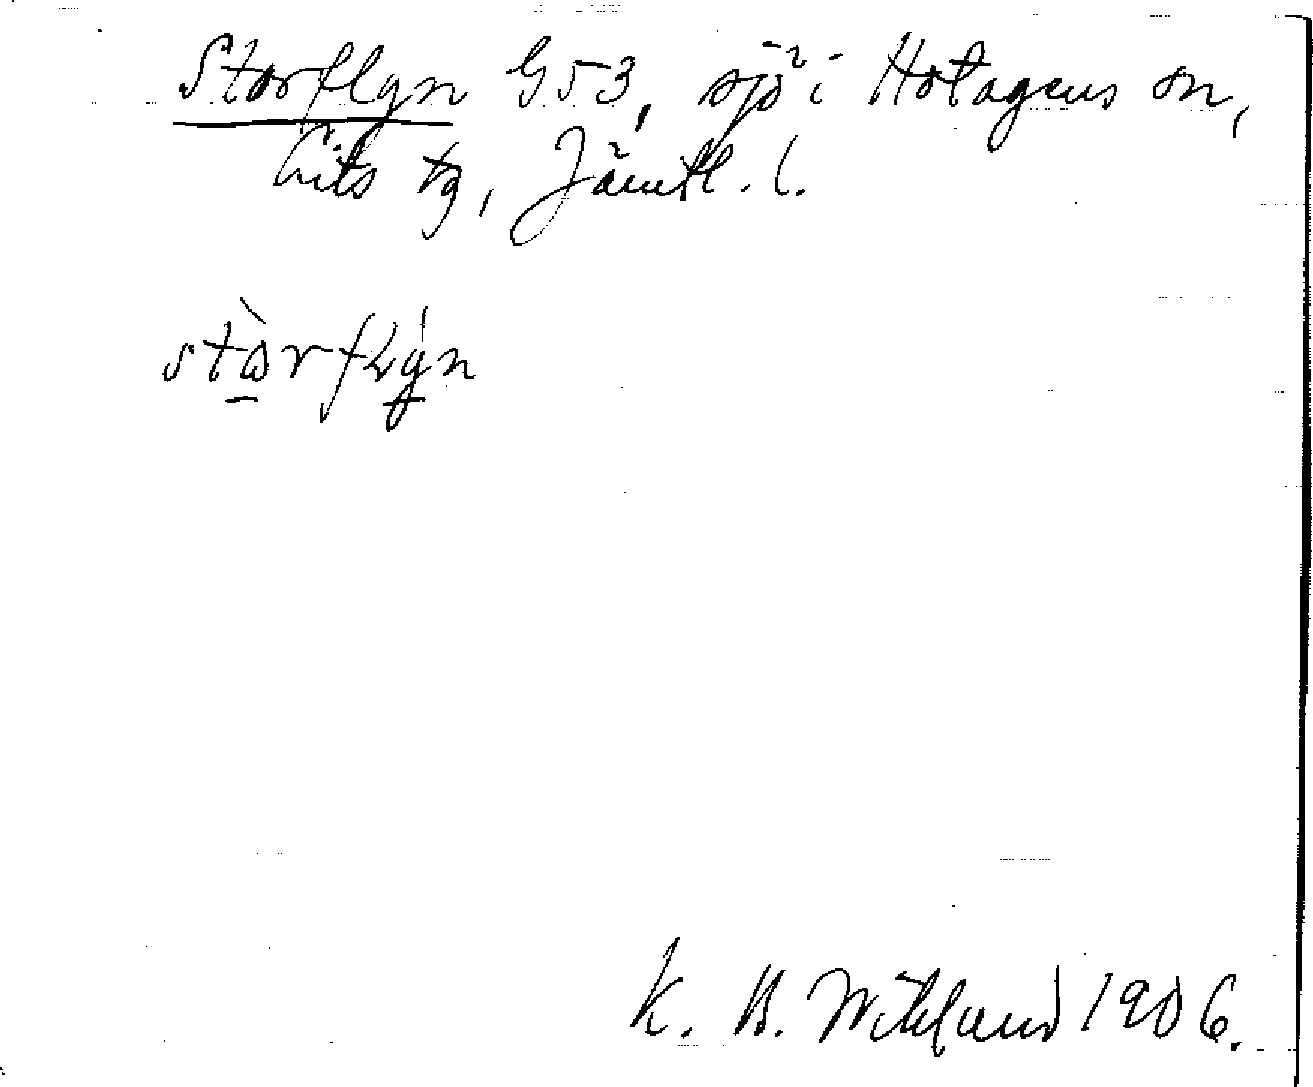 Storflyn G53, sjö i Hotagens sn,
Lits tg, Jämtl. l.
stòrflýn
K. B. Wiklund 1906.